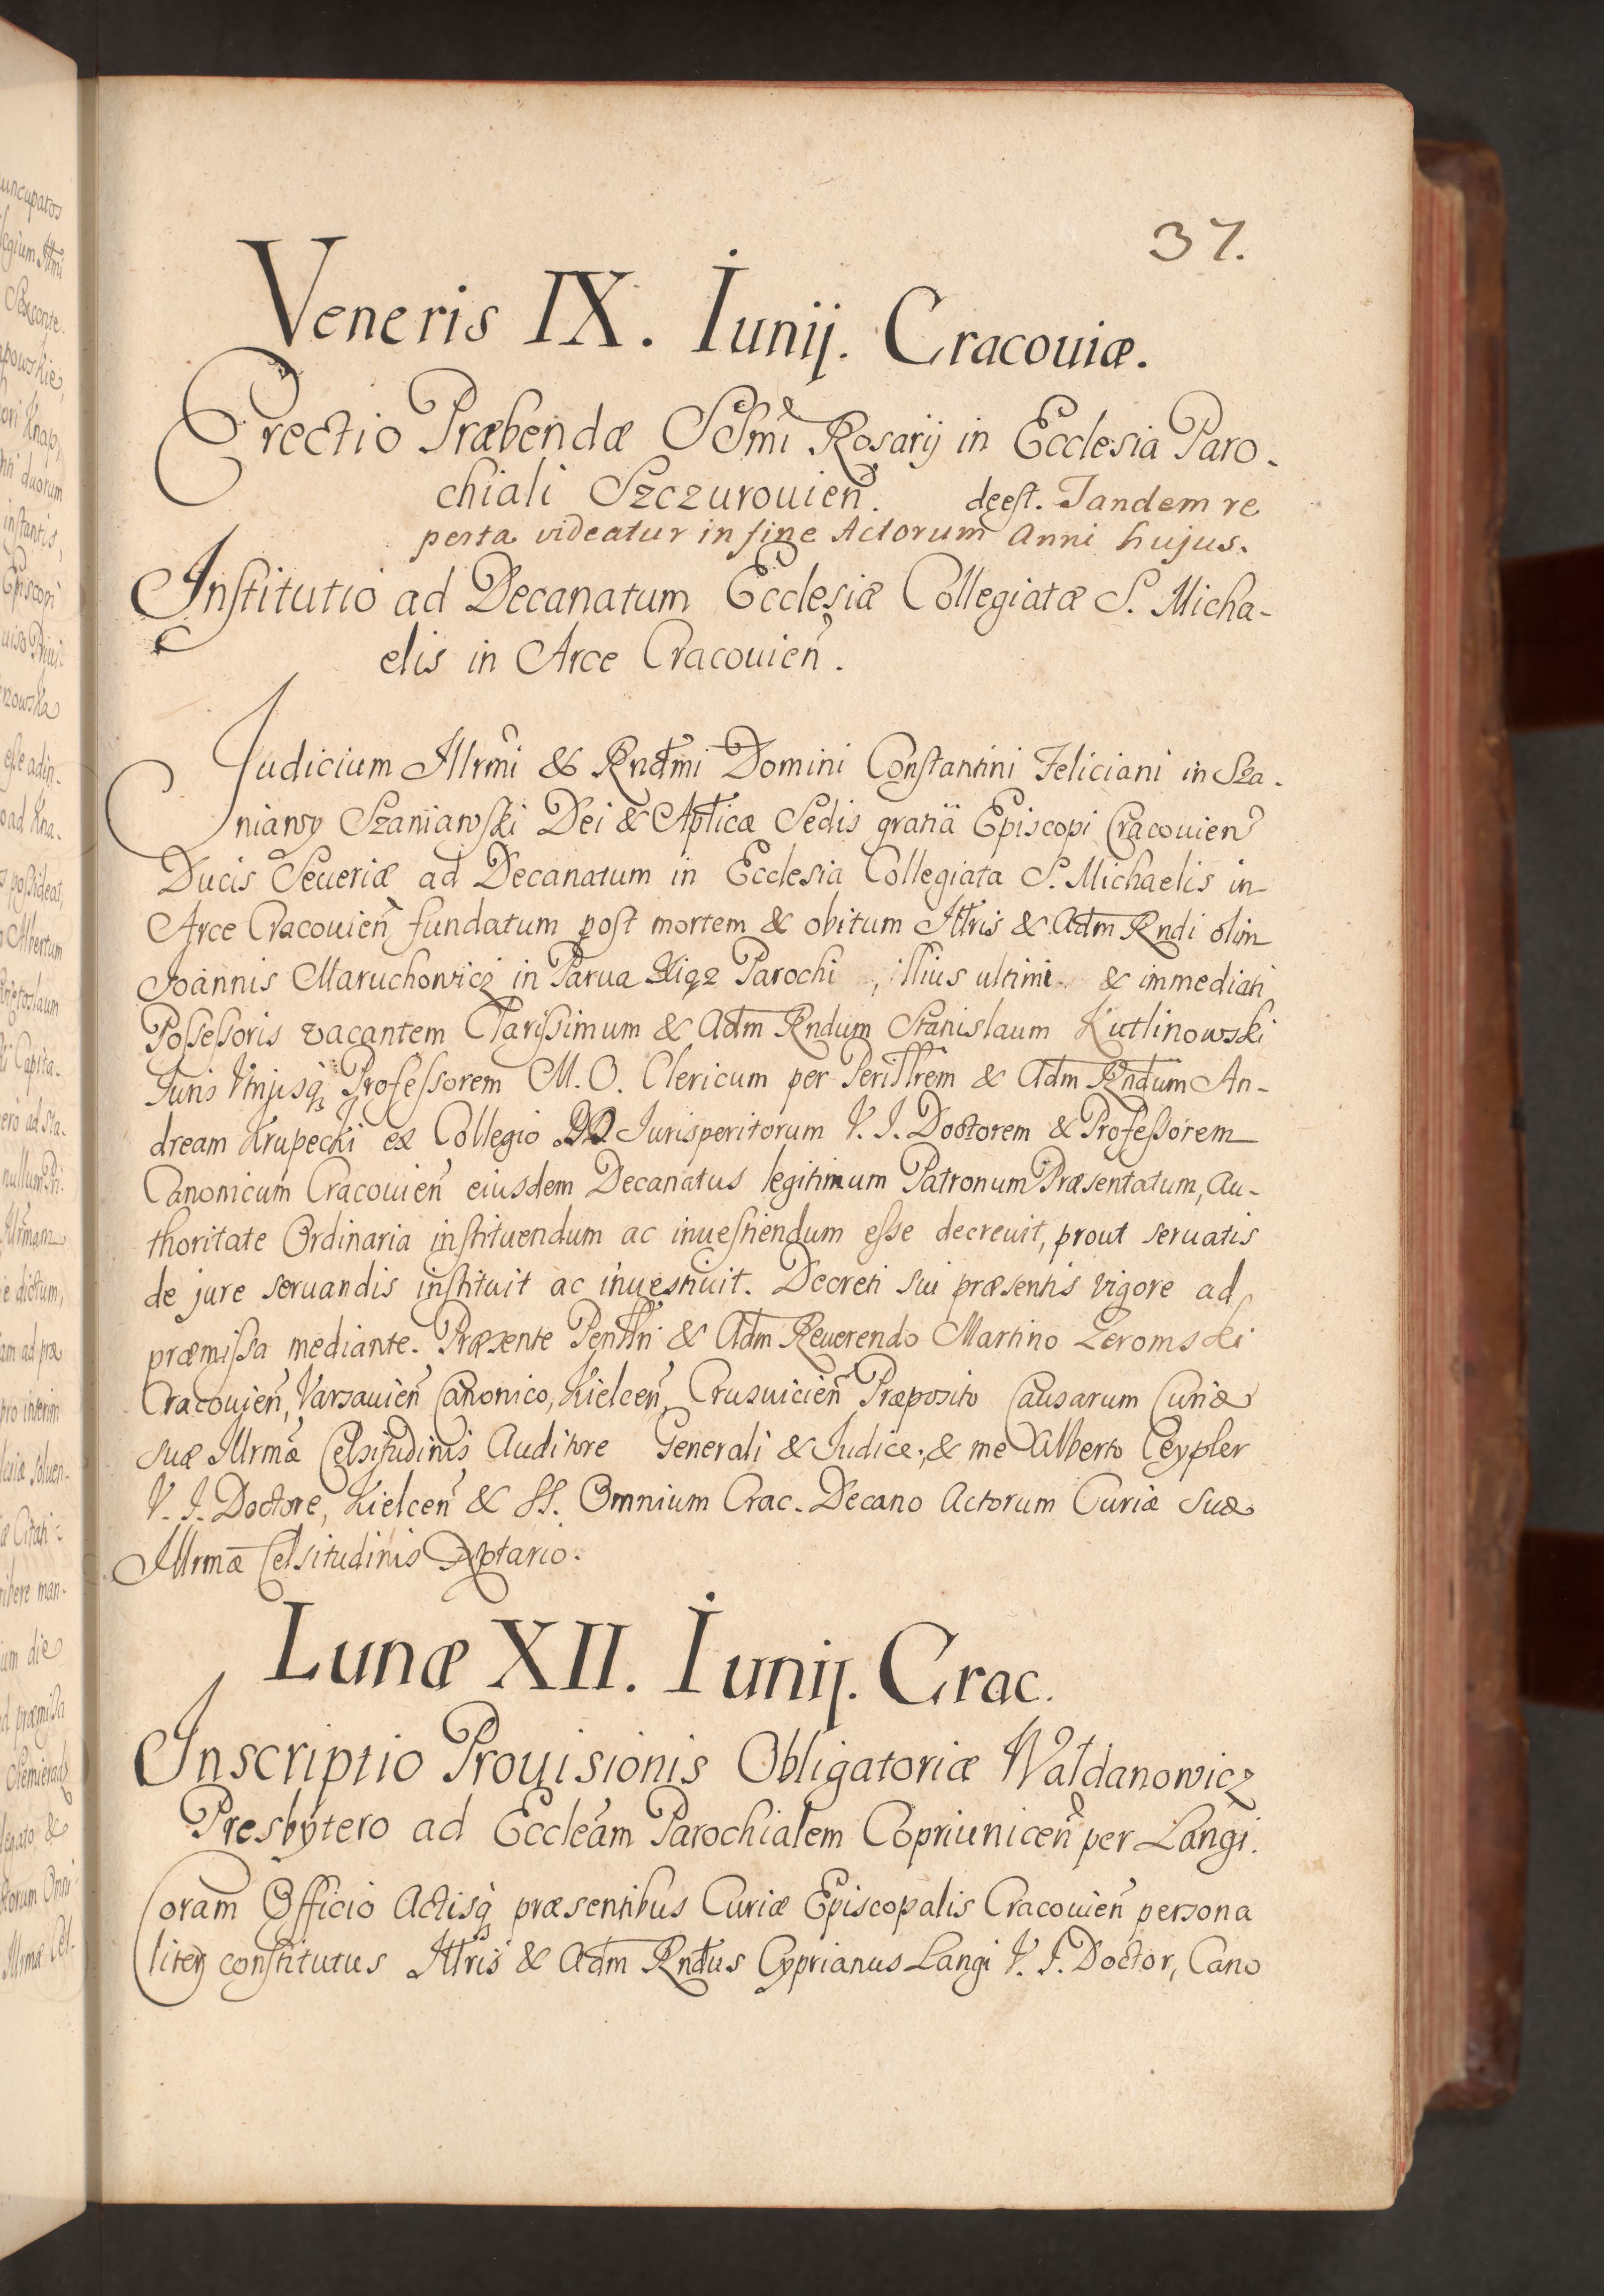 37.
Veneris IX. Iunij. Cracouiæ.
Erectio Præbendæ SSmi Rosarij in Ecclesia Paro-
chiali Szczurouien. deest. Tandem re
perta videatur in fine Actorum Anni hujus.
Institutio ad Decanatum Ecclesiæ Collegiatæ S. Micha-
elis in Arce Cracouien.
Judicium Illrmi & Rndmi Domini Constantini Feliciani in Sza-
niawy Szaniawski Dei & Aplicæ Sedis gratia Episcopi Cracouien
Ducis Seueriæ ad Decanatum in Ecclesia Collegiata S. Michaelis in
Arce Cracouien fundatum post mortem & obitum Illris & Adm Rndi olim
Joannis Maruchowicz in Parua Parochi, illius ultimi & immediati
Possessoris vacantem Clarissimum & Adm Rndum Stanislaum Kutlinowski
Iuris Vtriusq Professorem M. O. Clericum per Perillrem & Adm Rndum An-
dream Krupecki ex Collegio DD Jurisperitorum V. J. Doctorem & Professorem
Canonicum Cracouien eiusdem Decanatus legitimum Patronum Præsentatum, au-
thoritate Ordinaria instituendum ac inuestiendum esse decreuit, prout seruatis
de jure seruandis instituit ac inuestiuit. Decreti sui præsentis vigore ad
præmissa mediante. Præsente Perilln & Adm Reuerendo Martino Zeromski
Cracouien, Varsauien Canonico, Kielcen, Crusuicien Præposito Causarum Curiæ
suæ Illrmæ Celsitudinis Auditore Generali & Iudice, & me Alberto Ceypler
V. J. Doctore, Kielcen & SS. Omnium Crac. Decano Actorum Curiæ suæ
Illrmæ Celsitudinis Notario.
Lunæ XII. Iunij. Crac.
Inscriptio Prouisionis Obligatoriæ Waldanowicz
Presbytero ad Eccleam Parochialem Copriunicen per Langi.
Coram Officio Actisq præsentibus Curiæ Episcopalis Cracouien persona
liter constitutus Illris & Adm Rndus Cyprianus Langi V. J. Doctor, Cano